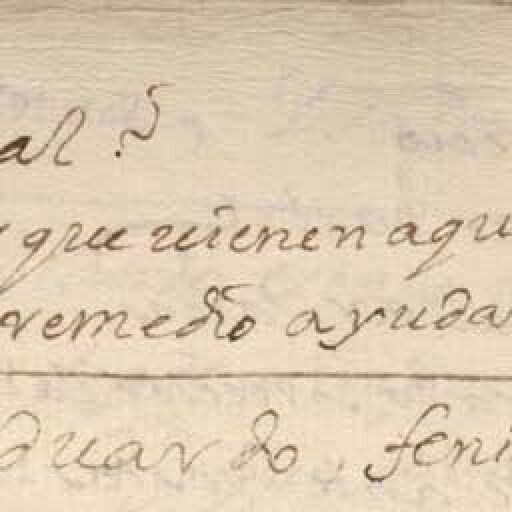 al?
que vienen aqu
remedio ayuda
duardo, feni